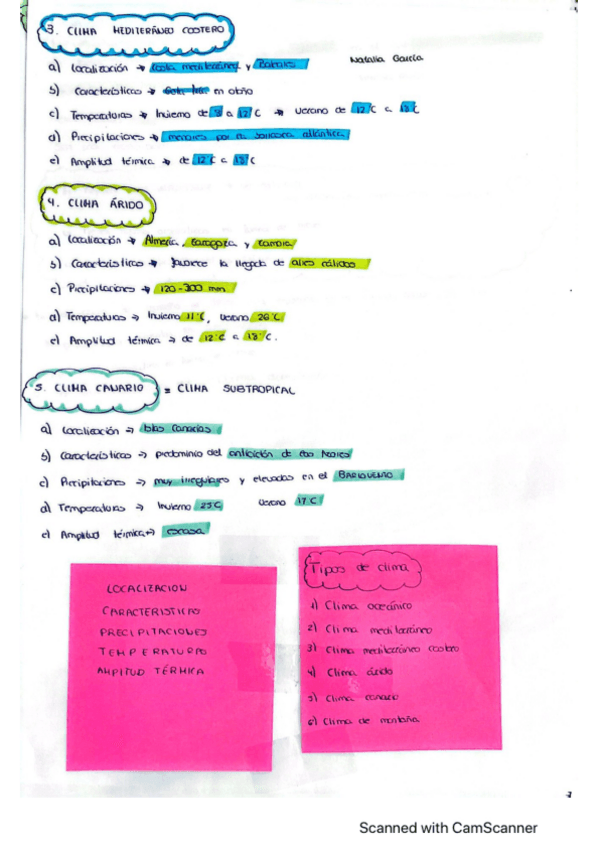 3. CLIMA MEDITERÁNEO COSTERO
Natalia García
a) Localización → Costa mediterránea y Baleares
b) Características → Gota fría en otoño
c) Temperaturas → Invierno de a 12°C → verano de 12°C a 18°C
d) Precipitaciones → menores por la atlántica
e) Amplitud térmica → de 12°C a 18°C
4. CLIMA ÁRIDO
a) Localización → Almería, Zaragoza y
b) Características → favorece la llegada de aires cálidos
c) Precipitaciones → 120-300 mm
d) Temperaturas → Invierno 11°C, verano 26°C
e) Amplitud térmica → de 12°C a 18°C.
5. CLIMA CANARIO = CLIMA SUBTROPICAL
a) Localización → Islas Canarias
b) Características → predominio del anticiclón de las Azores
c) Precipitaciones → muy irregulares y elevadas en el
d) Temperaturas → Invierno 23°C Verano 17°C
e) Amplitud térmica → escasa
LOCALIZACION
CARACTERISTICAS
PRECIPITACIONES
TEMPERATURAS
AMPITUD TÉRMICA
Tipos de clima
1) Clima oceánico
2) Clima mediterráneo
3) Clima mediterráneo costero
4) Clima árido
5) Clima canario
6) Clima de montaña
Scanned with CamScanner